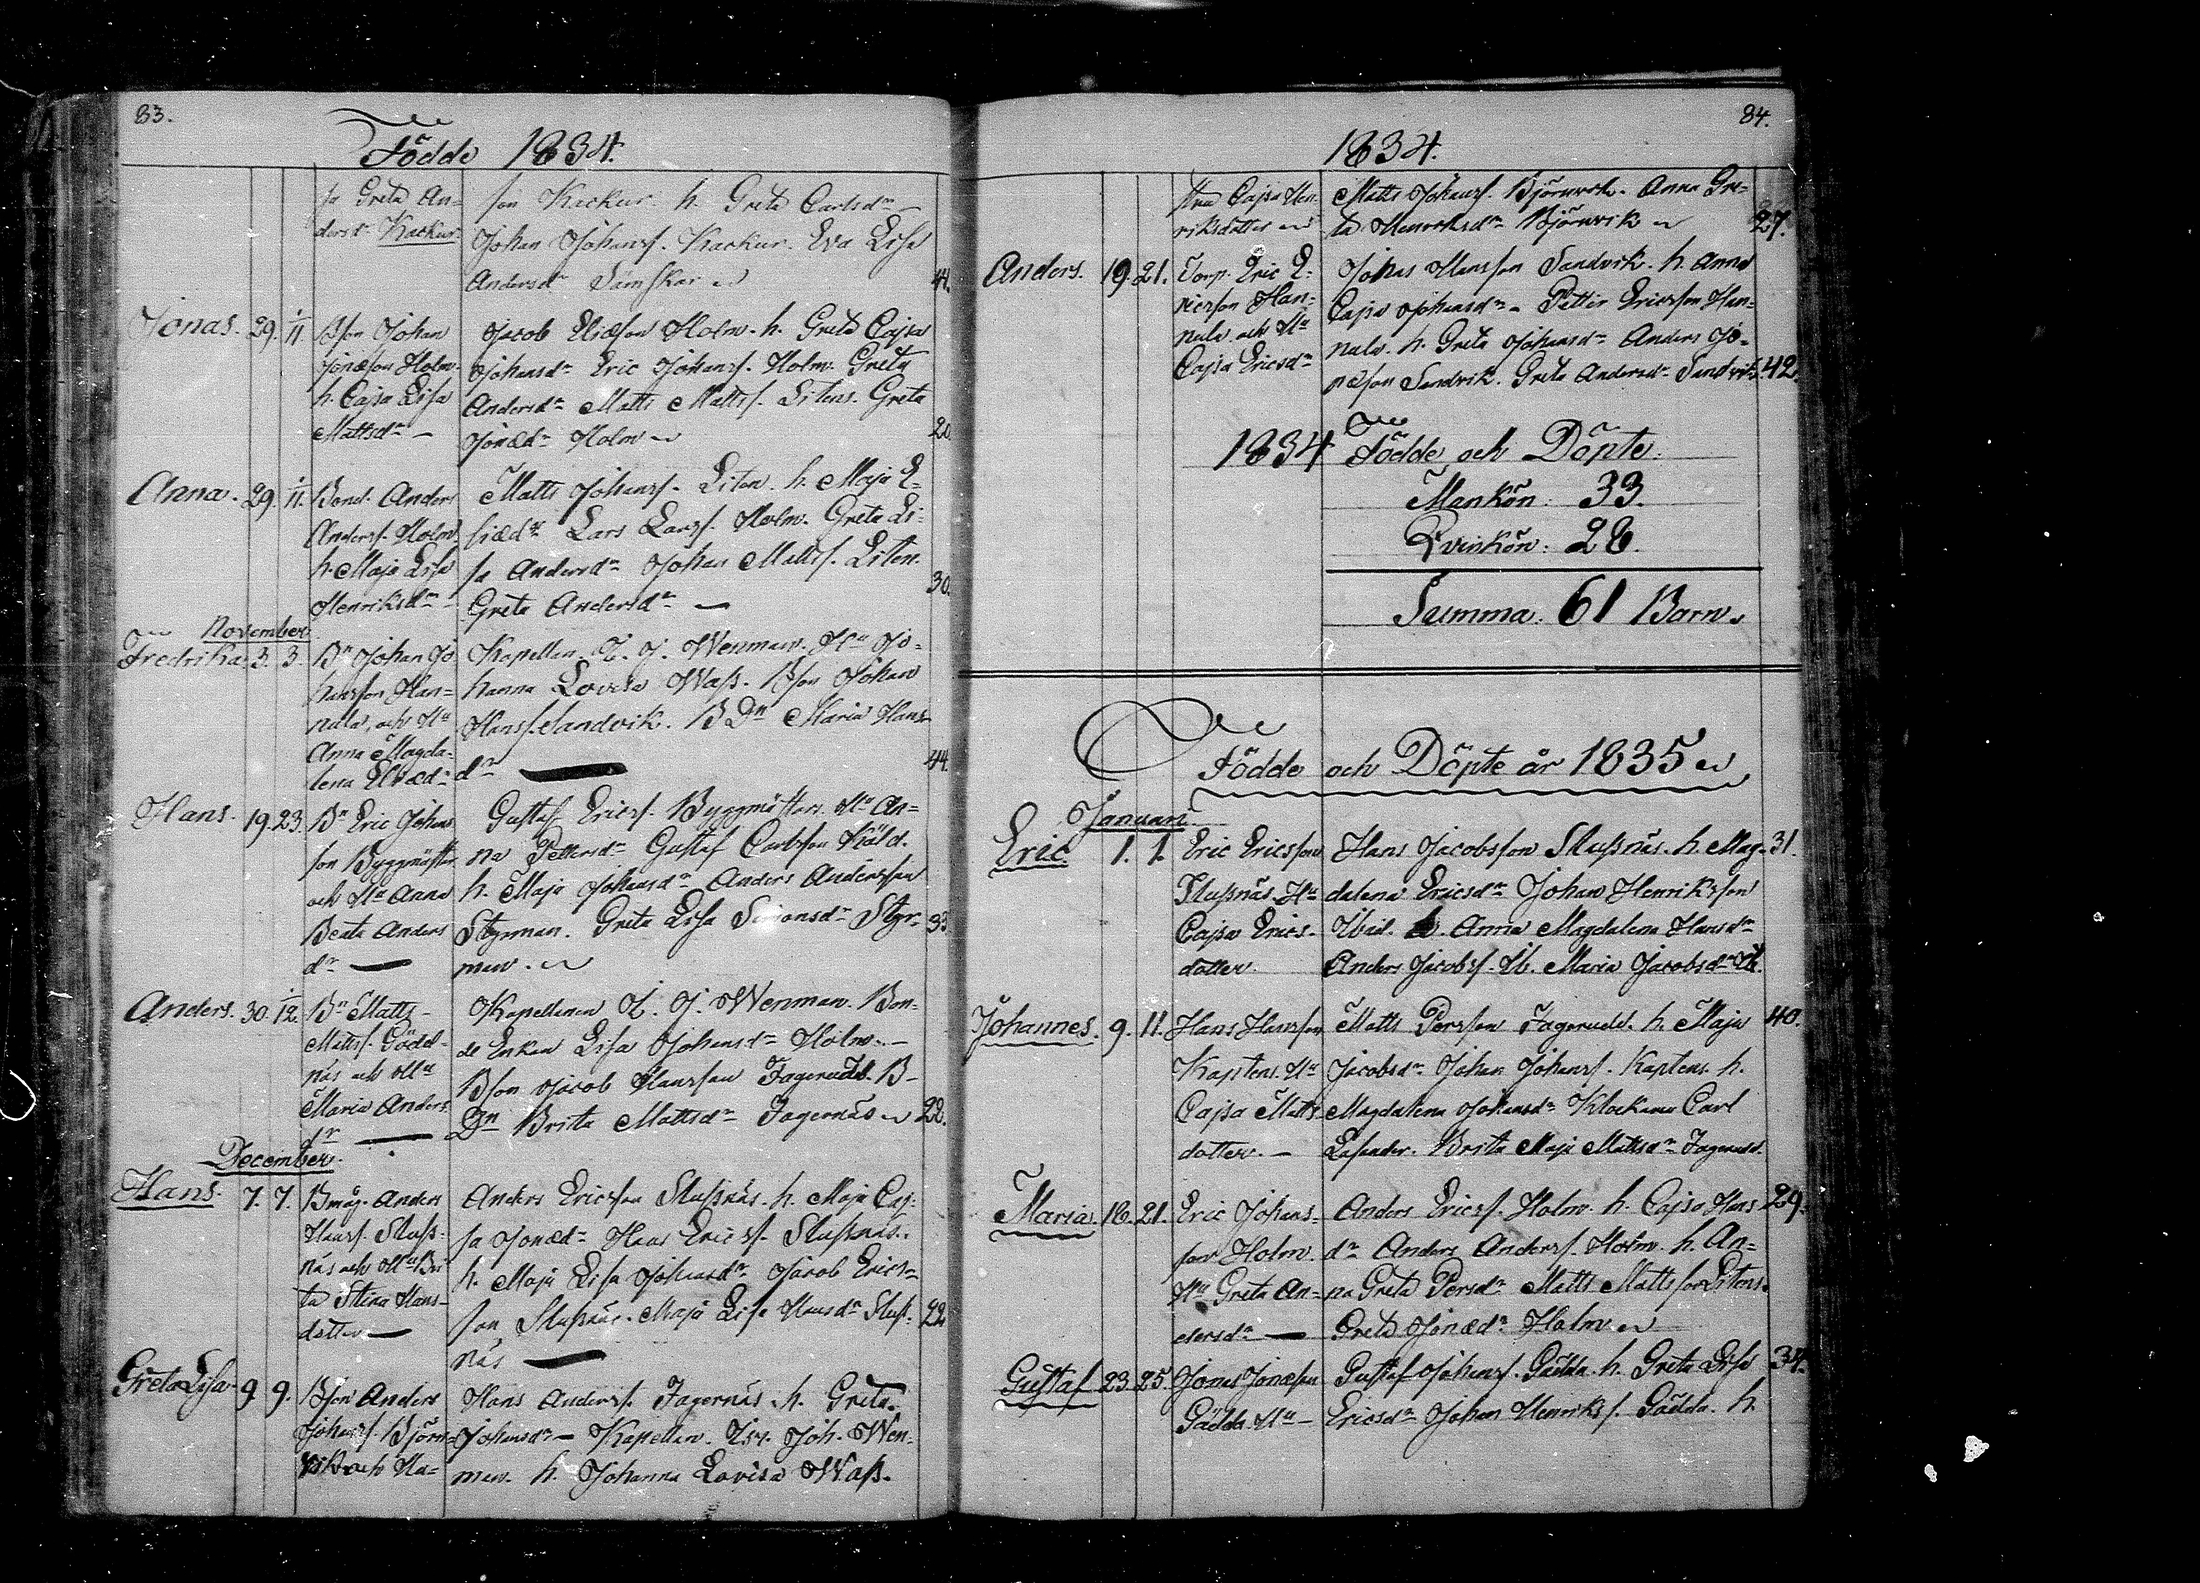 83.
Födde 1834.
sa Greta An-
dersd:r Kackur.
son Kackur. h. Greta Carlsd:r
Johan Johanss. Kackur. Eva Lisa
Andersd:r
44.
Jonas. 29. 1/11
Bson Johan
Jonæson Holm.
h. Cajsa Lisa
Mattsd:r –
Jacob Eliæson Holm. h. Greta Cajsa
Johansd:r Eric Johanss. Holm. Greta
Andersd:r Matts Mattss. Litens. Greta
Jonæd:r Holm
20
Anna. 29. 1/11.
Bond. Anders
Anderss. Holm
h. Maja Lisa
Henriksd:r
Matts Johanss. Liten. h. Maja E-
siæd:r Lars Larss. Holm. Greta Li-
sa Andersd:r Johan Mattss. Liten.
Greta Andersd:r –
30.
November
Fredrika. 3. 3.
B:n Johan Jo
hansson Han-
nula, och H:u
Anna Magda-
lena Eliæd:r
Kapellan. Z. J. Wenman. H:u Jo-
hanna Lovisa Wass. Bson Johan
Hanss. Sandvik. B D:n Maria Hans
d:r –
44.
Hans. 19. 23.
B:n Eric Johans
son Byggmästar
och H:u Anna
Beata Anders
d:r –
Gustaf Ericss. Byggmästars H:u An-
na Pettersd:r Gustaf Carlsson Käld.
h. Maja Johansd:r Anders Andersson
Styrman. Greta Lisa Simonsd:r Styr-
man.
33
Anders. 30. 1/12.
B:n Matts
Mattss. Gödd-
näs och H:u
Maria Anders
d:r –
Kapellanen Z. J. Wenman. Bon-
de Enkan Lisa Johansd:r Holm. –
Bson Jacob Hansson Fagerudd. B-
D:n Britta Mattsd:r Fagernäs
22.
December.
Hans. 7. 7.
Bmåg. Anders
Hanss. Sluss-
näs och H:u Bri
ta Stina Hans-
dotter –
Anders Ericsson Slussnäs. h. Maja Caj-
sa Jonæd:r Hans Ericss. Slussnäs.
h. Maja Lisa Johansd:r Jacob Erics-
son Slussnäs. Maja Lisa Hansd:r Sluss-
näs –
22
Greta Lisa. 9 9.
Bson Anders
Johanss. Björn-
vik och Hu-
Hans Anderss. Fagernäs. h. Greta
Johansd:r – Kapellan. Zac. Joh. Wen-
man. h. Johanna Lovisa Wass.
84.
1834.
stru Cajsa Hen-
riksdotter
Matts Johanss. Björnvik. Anna Gre-
ta Henriksd:r Björnvik
27.
Anders. 19. 21.
Torp. Eric E-
ricsson Han-
nula och H:u
Cajsa Ericsd:r
Johan Hansson Sandvik. h. Anna
Cajsa Johansd:r – Petter Ericsson Han-
nula. h. Greta Johansd:r Anders Jo-
næson Sandvik. Greta Andersd:r Sandvik.
42.
1834 Födde och Döpte.
Mankön: 33.
Qvinkön: 28.
Summa. 61 Barn.
Födde och Döpte år 1835
Januari
Eric. 1. 1.
Eric Ericsson
Slussnäs. H:u
Cajsa Erics-
dotter.
Hans Jacobsson Slussnäs. h. Mag-
dalena Ericsd:r Johan Henriksson
Ibid. Anna Magdalena Hansd:r
Anders Jacobss. Ib. Maria Jacobsd:r Ib.
31.
Johannes. 9. 11.
Hans Hansson
Kaptens. H:u
Cajsa Matts
dotter. –
Matts Persson Fagerudd. h. Maja
Jacobsd:r Johan Johanss. Kaptens. h.
Magdalena Johansd:r Klockaren Carl
Brita Maja Mattsd:r Fagerudd.
40.
Maria. 16. 21.
Eric Johans-
son Holm.
H:u Greta An-
dersd:r –
Anders Ericss. Holm. h. Cajsa Hans
d:r Anders Anderss. Holm. h. An-
na Greta Persd:r Matts Mattsson Litens.
Greta Jonæd:r Holm
29.
Gustaf 23. 25.
Jonas Jonæson
Gädda. H:u –
Gustaf Johanss. Gädda. h. Greta Lisa
Ericsd:r Johan Henrikss. Gädda. h.
34.